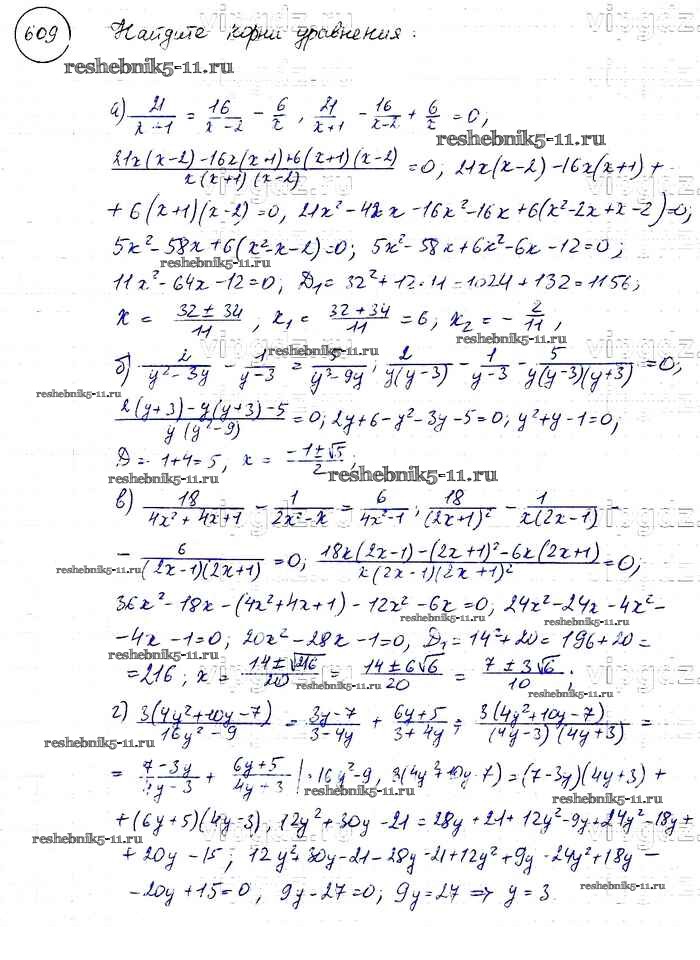 609 Найдите корни уравнения:
reshebnik5-11.ru
а) 21/(x-1) = 16/(x-2) - 6/x, 21/(x+1) - 16/(x-2) + 6/x = 0,
reshebnik5-11.ru
(21x(x-2)-16x(x+1)+6(x+1)(x-2))/(x(x+1)(x-2)) = 0; 21x(x-2)-16x(x+1)+
+6(x+1)(x-2)=0, 21x²-42x-16x²-16x+6(x²-2x+x-2)=0;
5x²-58x+6(x²-x-2)=0; 5x²-58x+6x²-6x-12=0;
reshebnik5-11.ru
11x²-64x-12=0; D₁=32²+12·11=1024+132=1156;
x = (32±34)/11, x₁ = (32+34)/11 = 6, x₂ = -2/11,
reshebnik5-11.ru
б) 2/(y²-3y) - 1/(y-3) = 5/(y³-9y); 2/(y(y-3)) - 1/(y-3) - 5/(y(y-3)(y+3)) = 0;
reshebnik5-11.ru
(2(y+3)-y(y+3)-5)/(y(y²-9)) = 0; 2y+6-y²-3y-5=0; y²+y-1=0;
D=1+4=5, x = (-1±√5)/2;
reshebnik5-11.ru
reshebnik5-11.ru
в) 18/(4x²+4x+1) - 1/(2x²-x) = 6/(4x²-1); 18/(2x+1)² - 1/(x(2x-1)) -
- 6/((2x-1)(2x+1)) = 0; (18x(2x-1)-(2x+1)²-6x(2x+1))/(x(2x-1)(2x+1)²) = 0;
reshebnik5-11.ru
reshebnik5-11.ru
36x²-18x-(4x²+4x+1)-12x²-6x=0, 24x²-24x-4x²-
-4x-1=0; 20x²-28x-1=0, D₁=14²+20=196+20=
reshebnik5-11.ru
=216; x = (14±√216)/20 = (14±6√6)/20 = (7±3√6)/10;
reshebnik5-11.ru
г) 3(4y²+10y-7)/(16y²-9) = (3y-7)/(3-4y) + (6y+5)/(3+4y); 3(4y²+10y-7)/((4y-3)(4y+3)) =
reshebnik5-11.ru
reshebnik5-11.ru
= (7-3y)/(4y-3) + (6y+5)/(4y+3) |·16y²-9, 3(4y²+10y-7)=(7-3y)(4y+3)+
reshebnik5-11.ru
+(6y+5)(4y-3), 12y²+30y-21=28y+21+12y²-9y+24y²-18y+
reshebnik5-11.ru
reshebnik5-11.ru
+20y-15; 12y²+30y-21-28y-21+12y²+9y-24y²+18y-
-20y+15=0, 9y-27=0; 9y=27 ⇒ y=3.
reshebnik5-11.ru